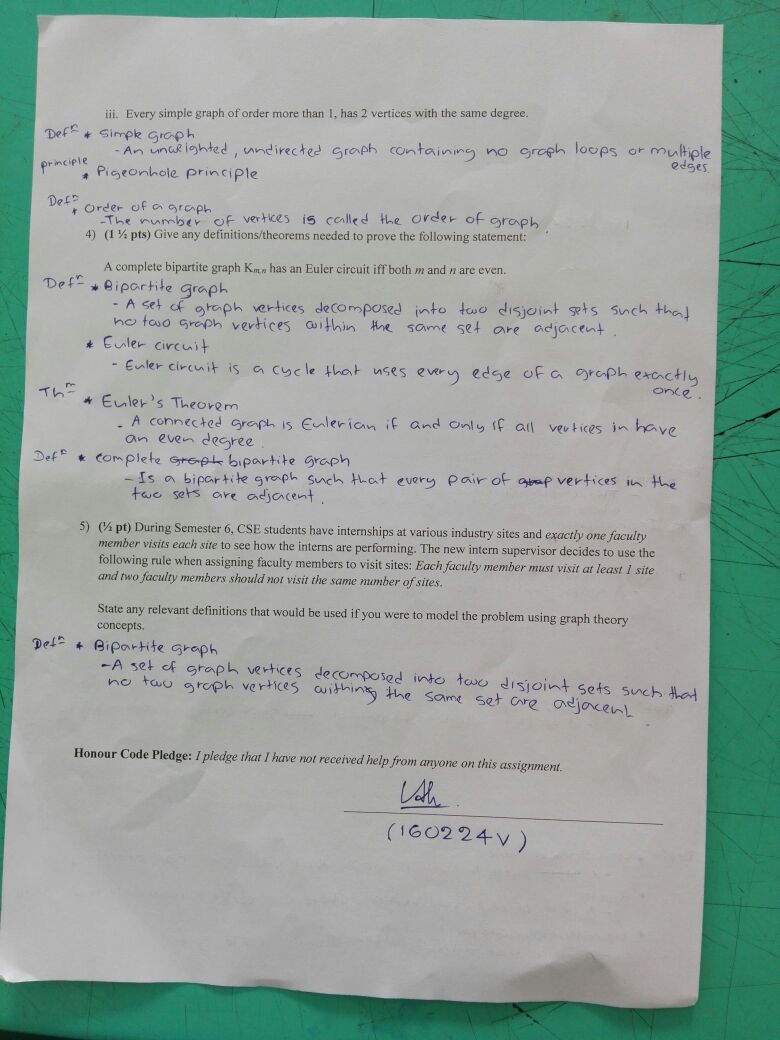 iii. Every simple graph of order more than 1, has 2 vertices with the same degree.
Defⁿ * Simple graph
- An unweighted, undirected graph containing no graph loops or multiple
edges.
principle * Pigeonhole principle
Defⁿ * Order of a graph
- The number of vertices is called the order of graph
4) (1 ½ pts) Give any definitions/theorems needed to prove the following statement:
A complete bipartite graph Km,n has an Euler circuit iff both m and n are even.
Defⁿ * Bipartite graph
- A set of graph vertices decomposed into two disjoint sets such that
no two graph vertices within the same set are adjacent.
* Euler circuit
- Euler circuit is a cycle that uses every edge of a graph exactly
once.
Thᵐ * Euler's Theorem
- A connected graph is Eulerian if and only if all vertices in have
an even degree.
Defⁿ * complete graph bipartite graph
- Is a bipartite graph such that every pair of grap vertices in the
two sets are adjacent.
5) (½ pt) During Semester 6, CSE students have internships at various industry sites and exactly one faculty
member visits each site to see how the interns are performing. The new intern supervisor decides to use the
following rule when assigning faculty members to visit sites: Each faculty member must visit at least 1 site
and two faculty members should not visit the same number of sites.
State any relevant definitions that would be used if you were to model the problem using graph theory
concepts.
Defⁿ * Bipartite graph
- A set of graph vertices decomposed into two disjoint sets such that
no two graph vertices withing the same set are adjacent
Honour Code Pledge: I pledge that I have not received help from anyone on this assignment.
(160224V)